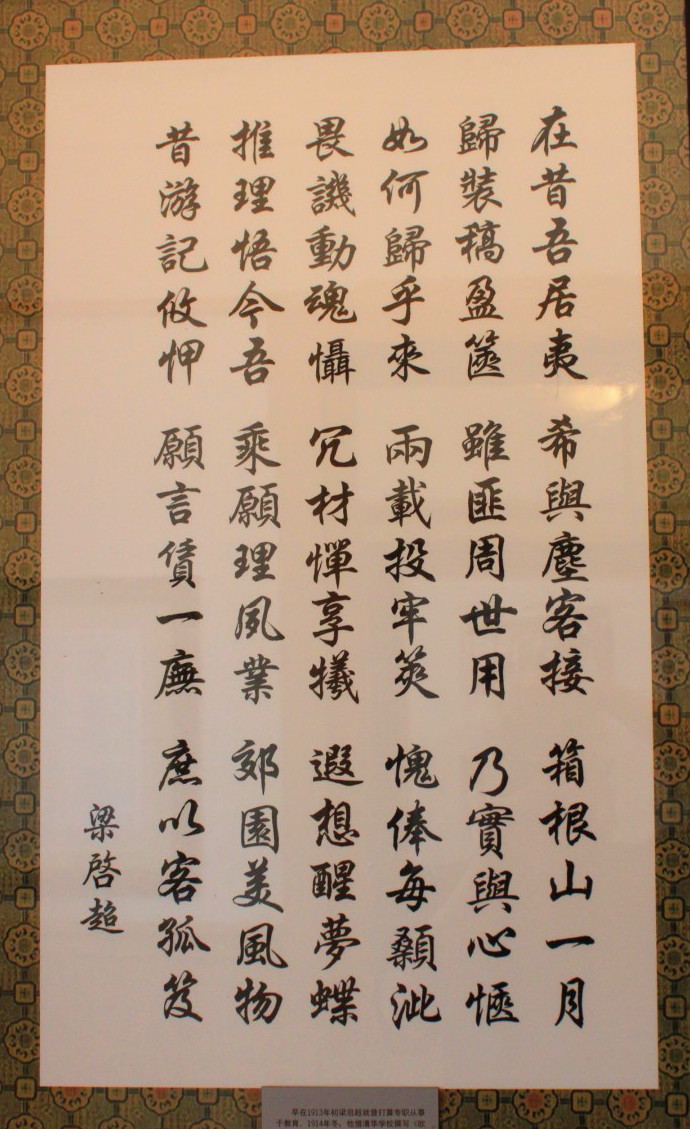 在昔吾居夷 希與塵客接 箱根山一月
歸裝稿盈篋 雖匪周世用 乃實與心愜
如何歸乎來 兩載投牢筴 愧俸每顙泚
畏譏動魂懾 冗材憚享犧 遐想醒夢蝶
推理悟今吾 乘願理夙業 郊園美風物
昔游記攸怦 願言賃一廡 庶以客孤笈
梁啓超
早在1913年初梁启超就曾打算专职从事
于教育，1914年冬，他借清华学校撰写《欧